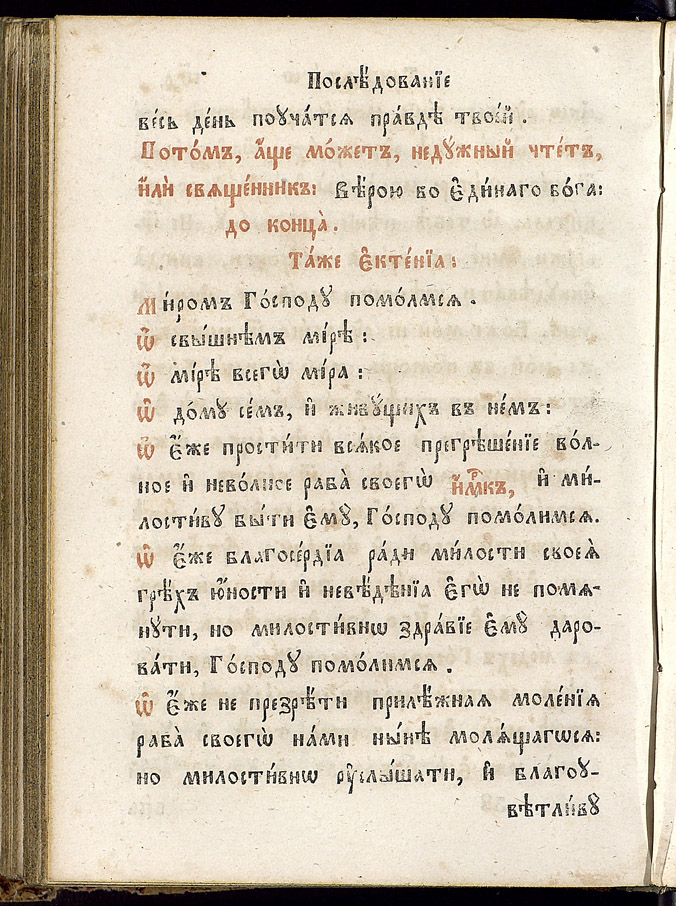 Послѣ́дованїе
ве́сь де́нь поуча́тся пра́вдѣ твое́й .
Пото́мъ, а҆́ще мо́жетъ, неду́жный чте́тъ,
и҆́лѝ свяще́нникъ: Вѣ́рою во є҆ди́наго бо́га:
до конца̀ .
Та́же є҆ктенїа̀ :
Миромъ Го́сподꙋ помо́лмся .
Ѡ҆ свы́шнѣмъ ми́рѣ :
Ѡ҆ мі́рѣ всегѡ̀ мі́ра :
Ѡ҆ до́мꙋ се́мъ, и҆ живꙋ́щихъ въ не́мъ :
Ѡ҆ є҆́же прости́ти вся́кое прегрѣше́нїе во́л-
ное и҆ нево́лное раба̀ своегѡ̀ и҆́мⷬ҇къ, и҆ ми́-
лости́вꙋ бы́ти є҆мꙋ̀, Го́сподꙋ помо́лимся.
Ѡ҆ є҆́же благосе́рдїа ра́ди ми́лости своея̀
грѣ̑хъ ю҆́ности и҆ невѣ́дѣнїа є҆гѡ̀ не помя-
нꙋ́ти, но милости́внѡ здра́вїе є҆мꙋ̀ даро-
ва́ти, Го́сподꙋ помо́лимся .
Ѡ҆ є҆́же не презрѣ́ти прилѣ́жная моле́нїя
раба̀ своегѡ̀ на́ми ны́нѣ моля́щагѡся :
но милости́внѡ ᲂу҆слы́шати, и҆ благоꙋ-
вѣтли́вꙋ